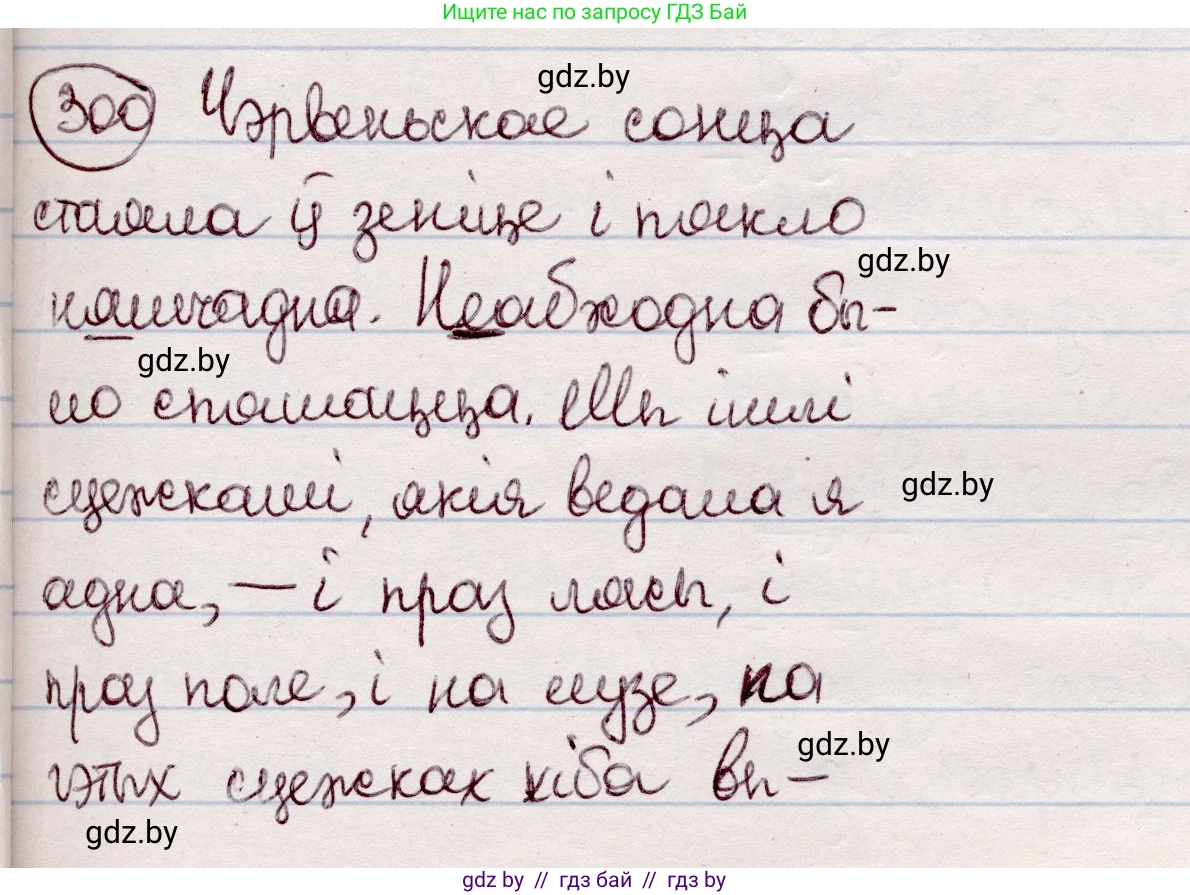 Ищите нас по запросу ГДЗ Бай
gdz.by
300 Чэрвеньскае сонца
стаяла ў зеніце і пякло
gdz.by
нашчадна. Неабходна бы-
gdz.by
ло спяшацца. Мы ішлі
сцежкамі, якія ведала я
gdz.by
адна, — і праз лясы, і
праз поле, і на лузе, на
gdz.by
гэтых сцежках хіба вы-
gdz.by
gdz.by // гдз бай // gdz.by